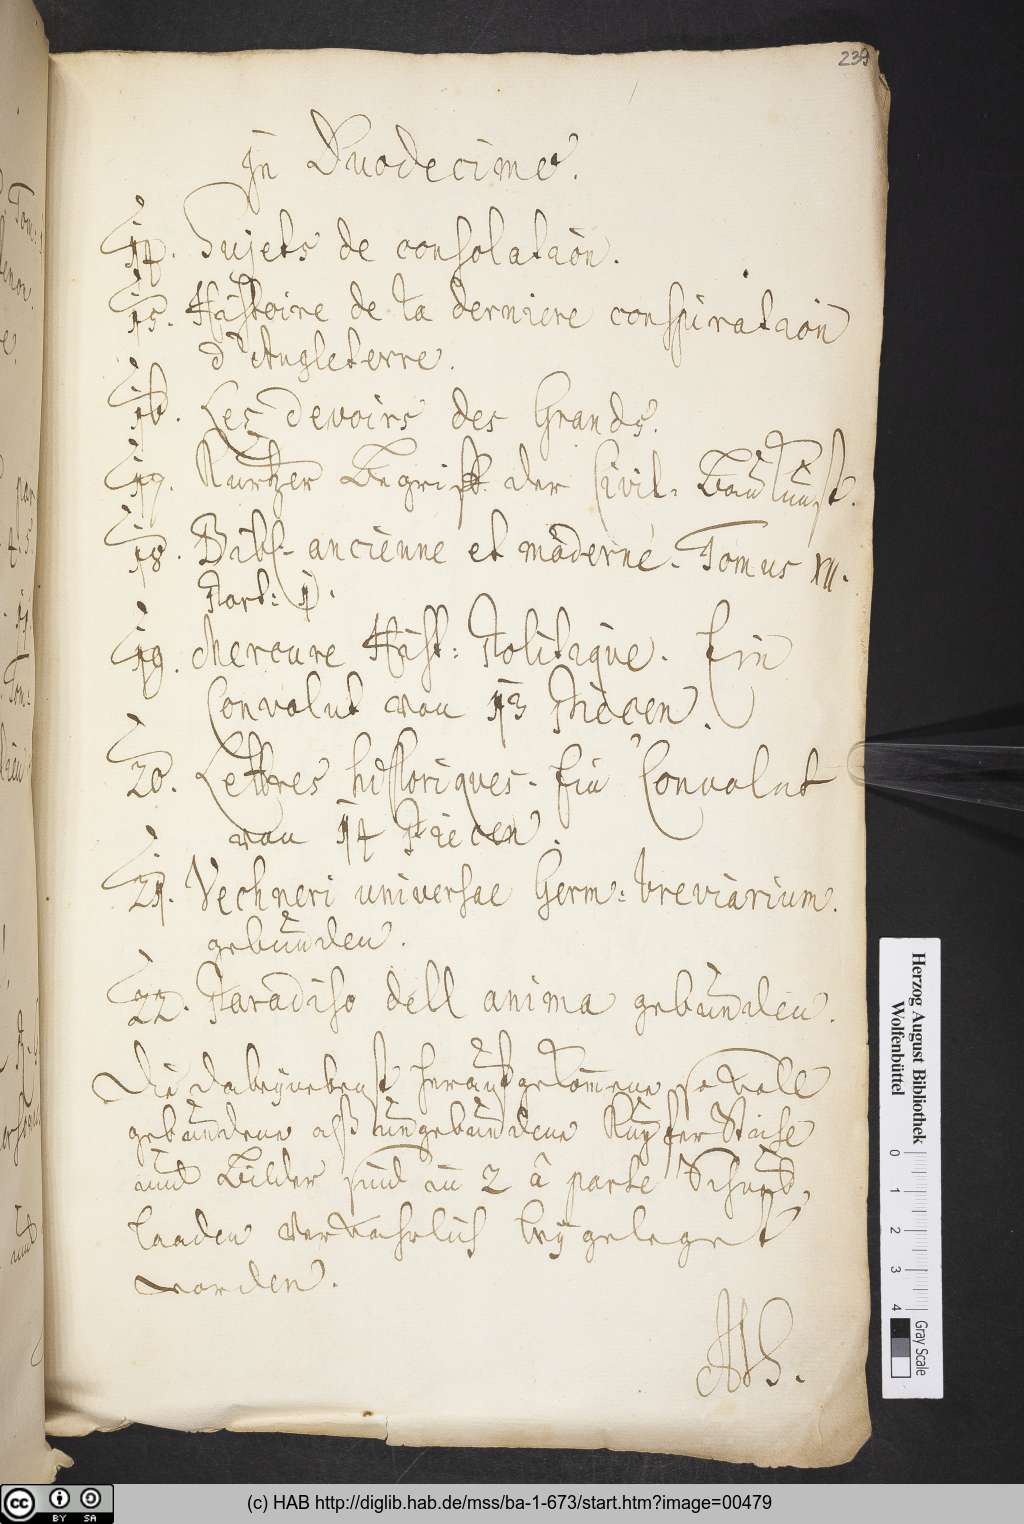 239
in Duodecimo.
14. Sujets de consolation.
15. Histoire de la derniere conspiration
d'Angleterre.
16. Les Devoirs des Grands.
17. Kurtzer Begriff der Civil-Baukunst.
18. Bibl. ancienne et moderne. Tomus XII.
Part: 1.
19. Mercure Hist: Politique. Ein
Convolut von 13 Piecen.
20. Lettres historiques. Ein Convolut
von 14 Piecen.
21. Vechneri universae Germ: breviarium.
gebunden.
22. Paradiso dell anima gebunden.
Die dabeynebenst herauskommene so woll
gebundene alß ungebundene Kupfer Stiche
und Bilder sind in 2 â parte Schub,
laaden verwahrlich beygeleget
worden.
Herzog August Bibliothek
Wolfenbüttel
0 1 2 3 4
Gray Scale
cc BY SA
(c) HAB http://diglib.hab.de/mss/ba-1-673/start.htm?image=00479